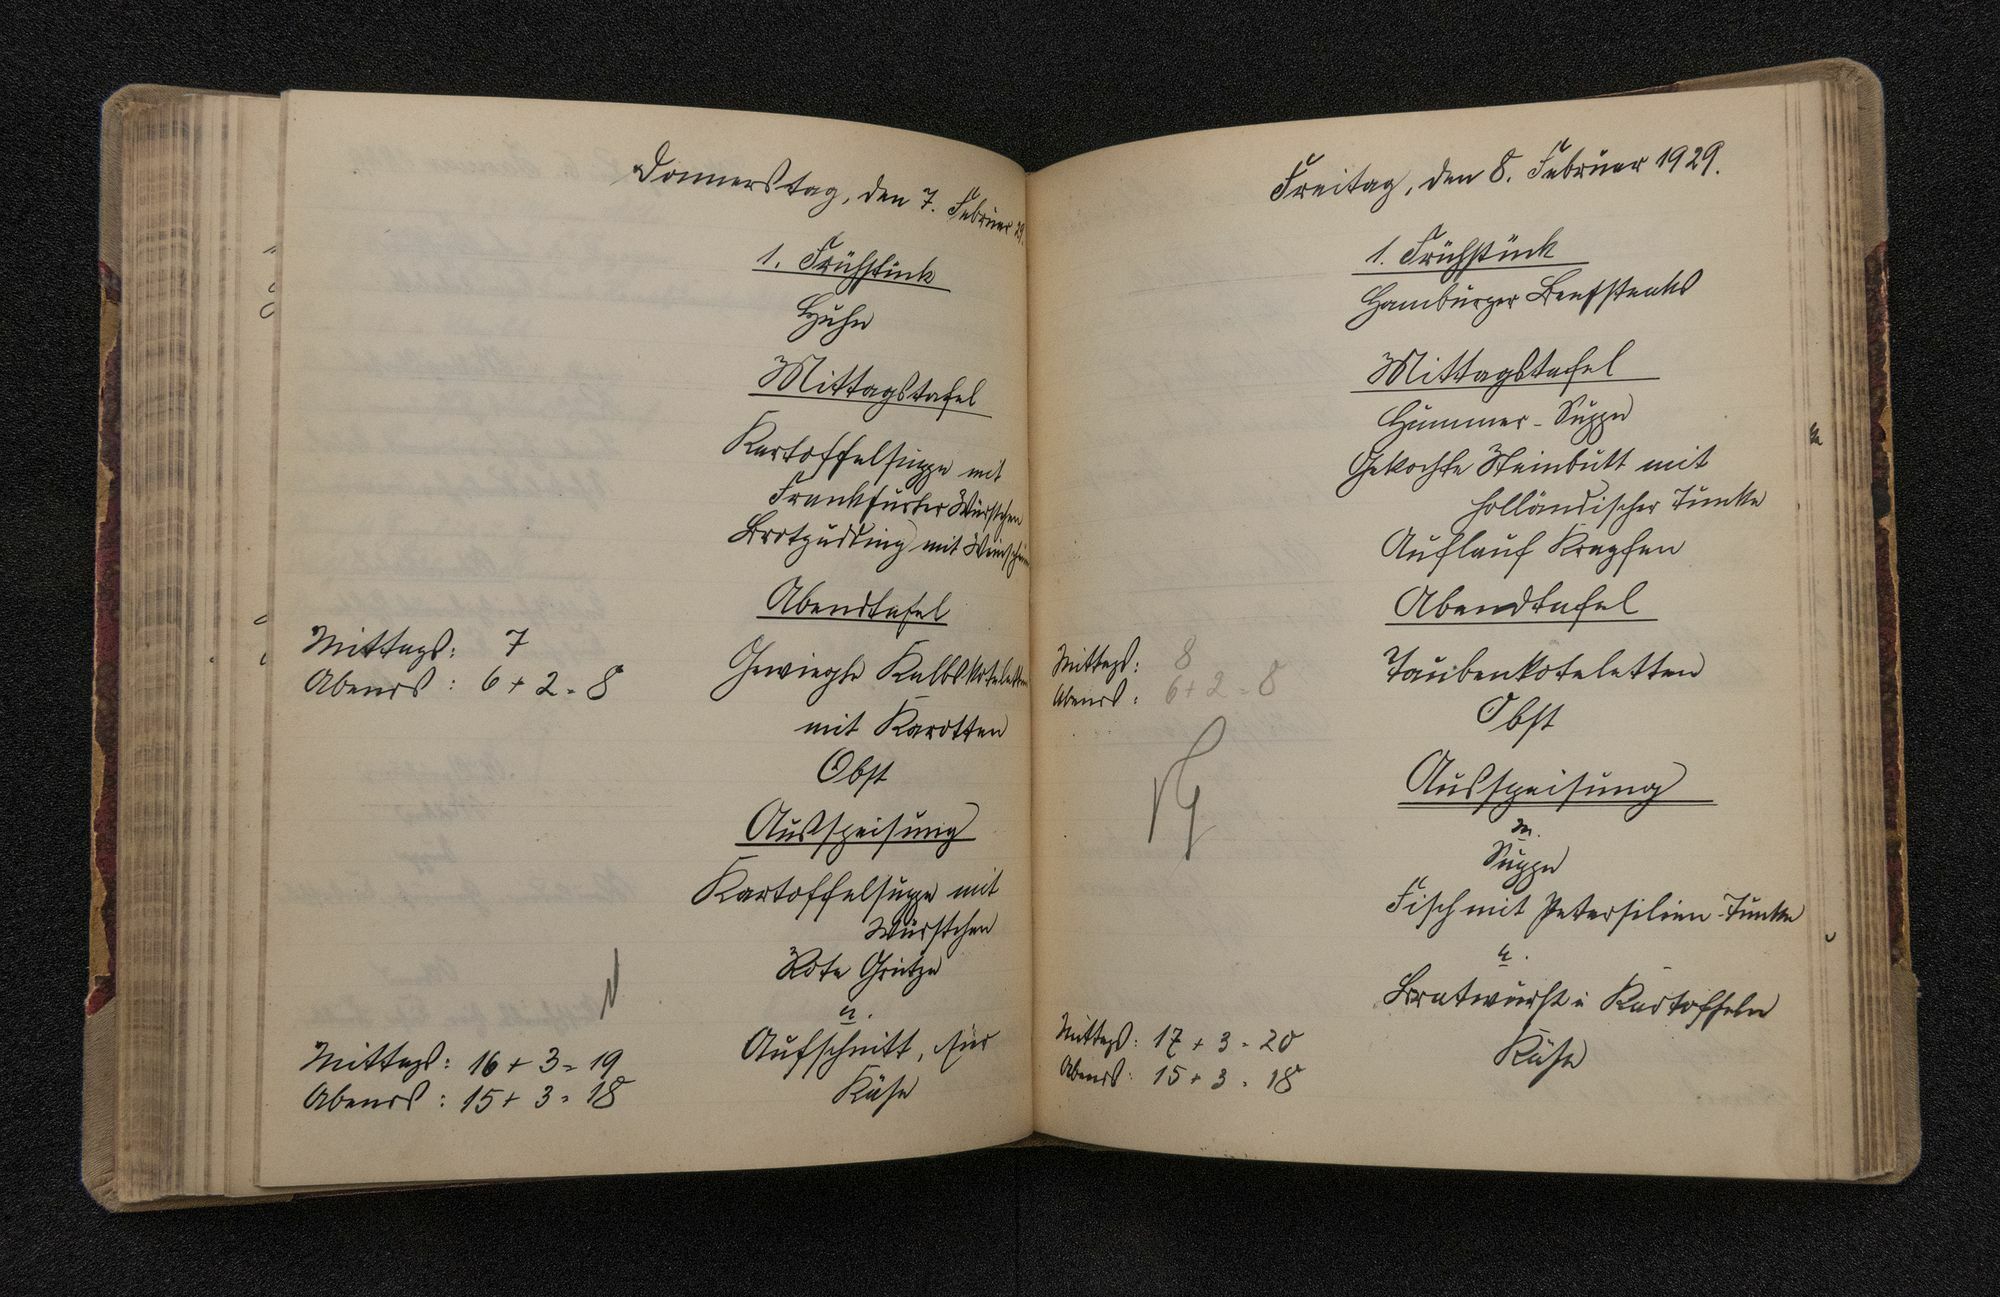 Donnerstag, den 7. Februar 29.
1. Frühstück
Huhn
Mittagstafel
Kartoffelsuppe mit
Frankfurter Würstchen
Brotpudding mit Weinschaum
Abendtafel
Mittags: 7
Abends: 6 + 2 = 8
Gewiegte Kalbskoteletten
mit Karotten
Obst
Ausspeisung
Kartoffelsuppe mit
Würstchen
Rote Grütze
a.
Aufschnitt, Eier
Käse
Mittags: 16 + 3 = 19
Abends: 15 + 3 = 18
Freitag, den 8. Februar 1929.
1. Frühstück
Hamburger Beefsteaks
Mittagstafel
Hummer-Suppe
Gekochte Steinbutt mit
holländischer Tunke
Auflauf Krapfen
Abendtafel
Mittags: 8
Abends: 6 + 2 = 8
Taubenkoteletten
Obst
Ausspeisung
m.
Suppe
Fisch mit Petersilien-Tunke
a.
Bratwurst u Kartoffeln
Käse
Mittags: 17 + 3 = 20
Abends: 15 + 3 = 18